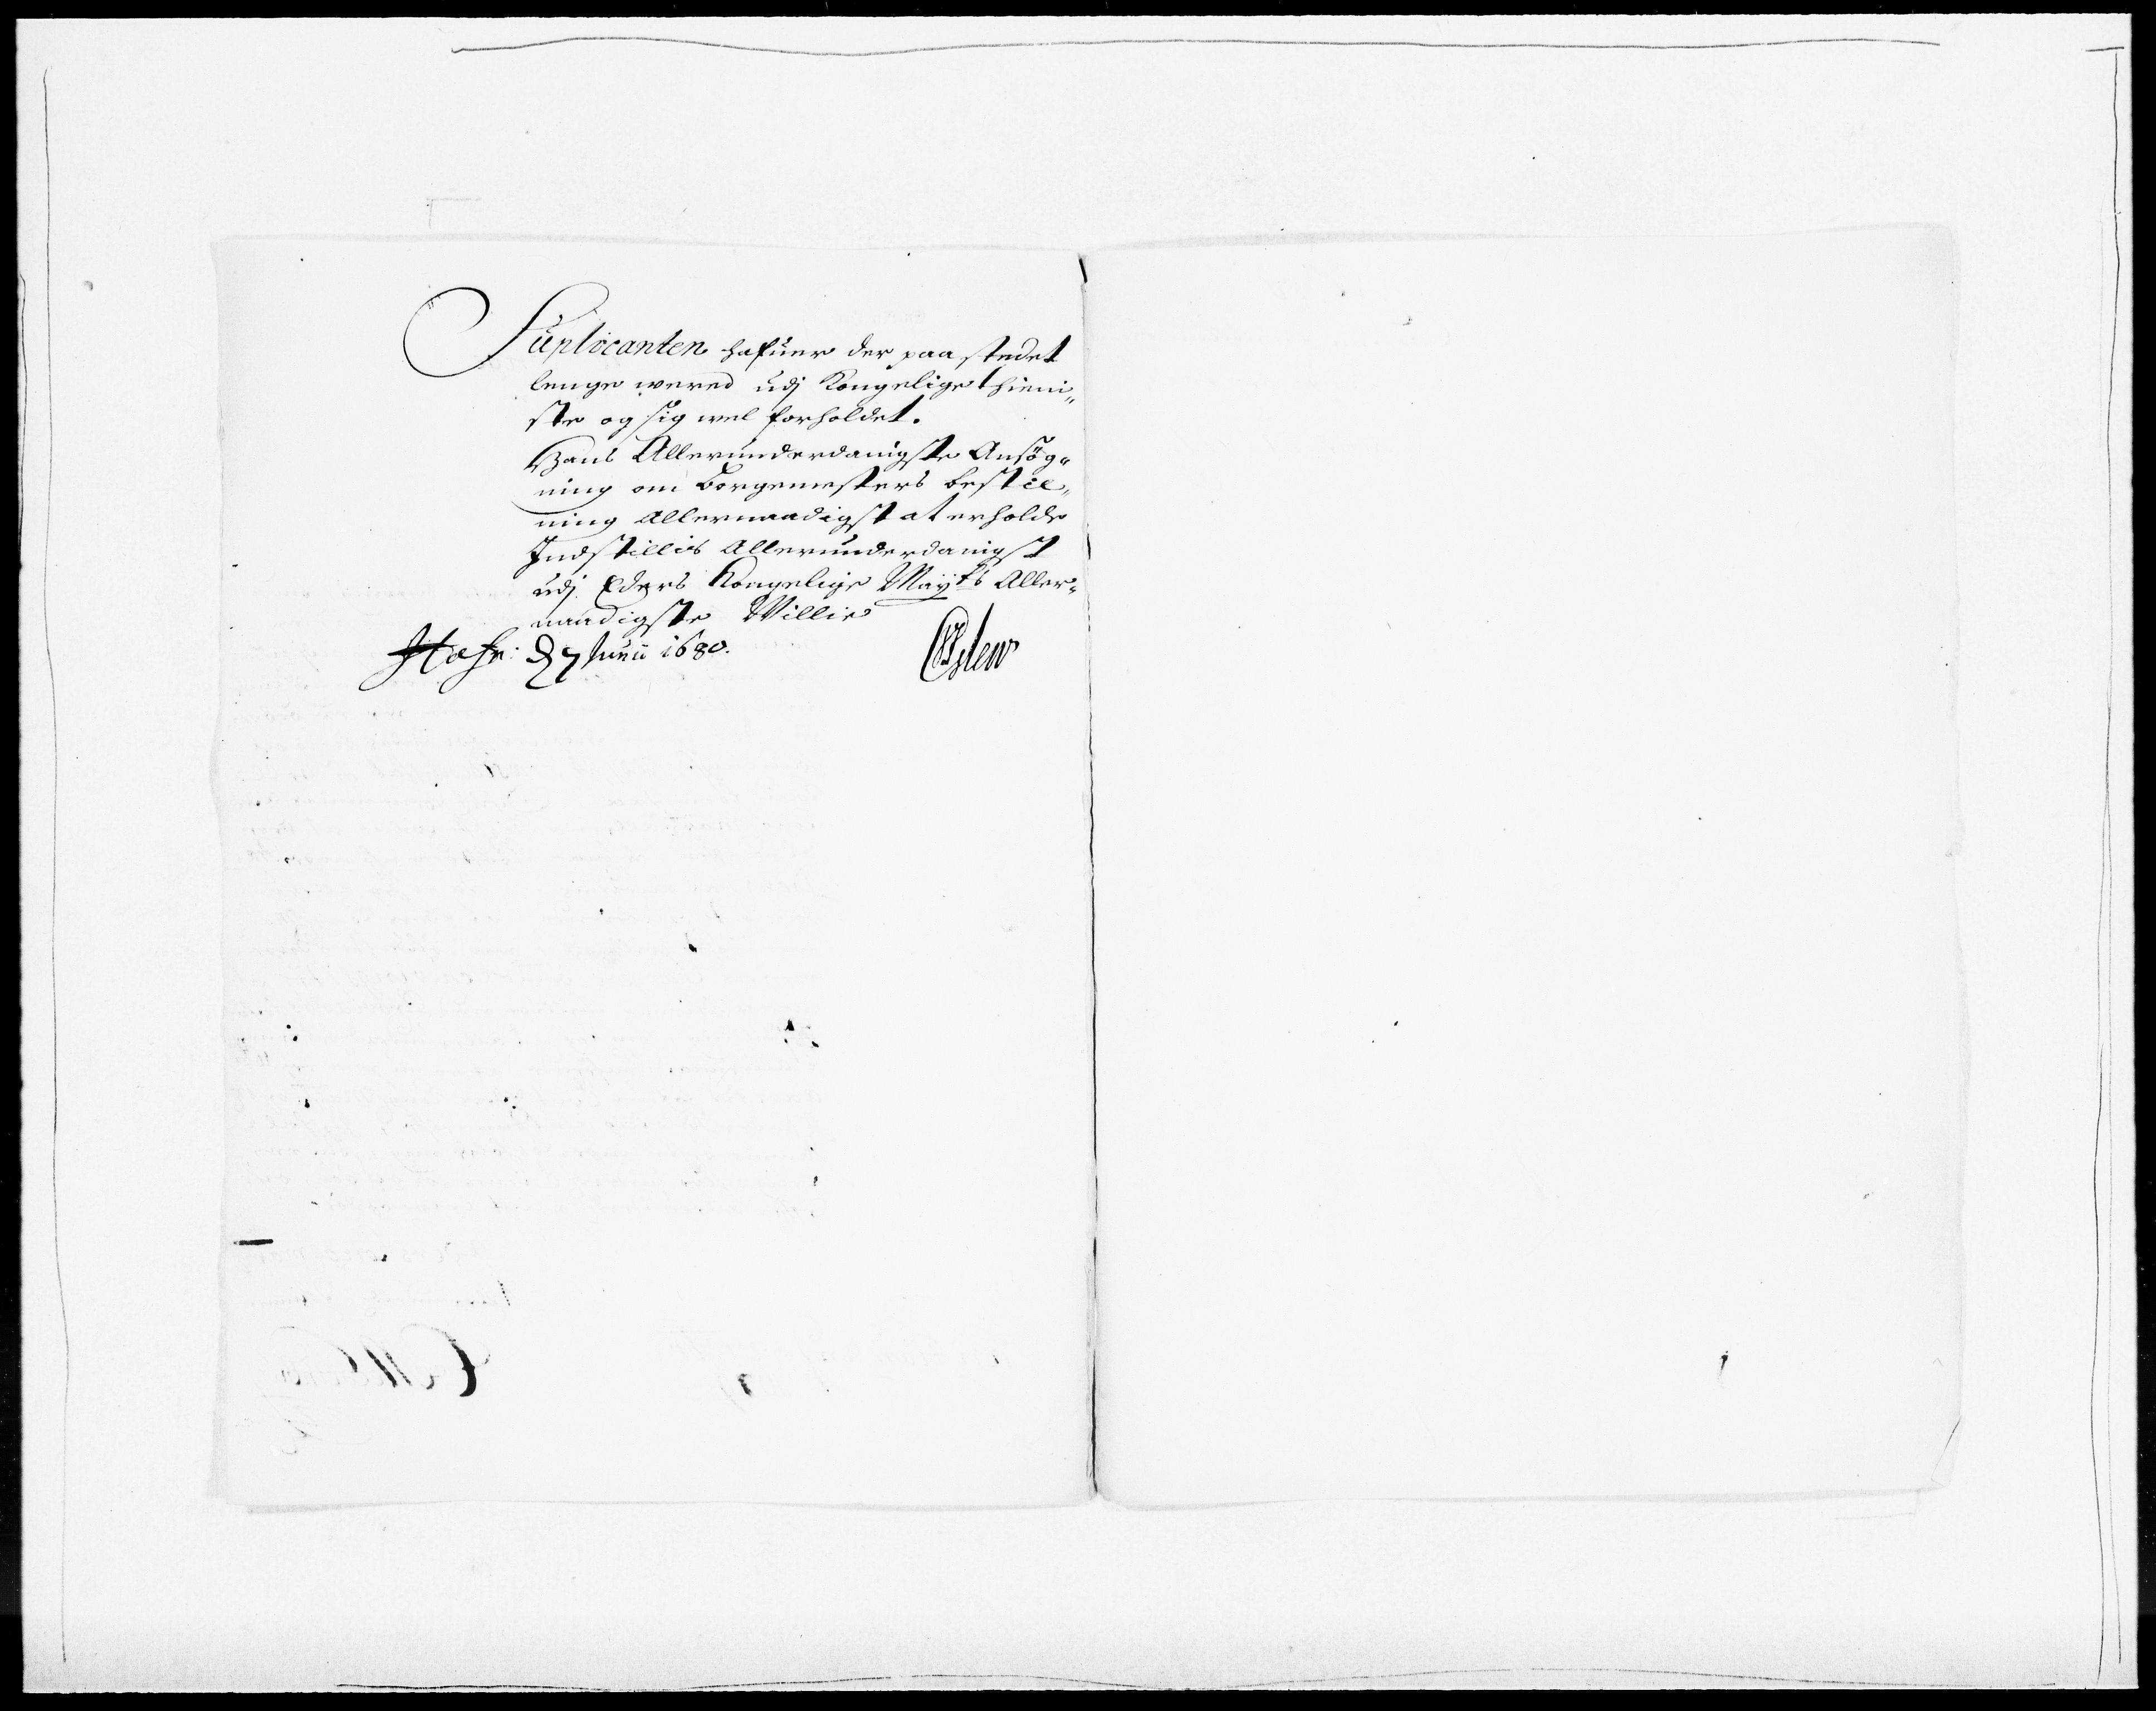 Suplicanten hafuer der paa stedet
lenge wered udj Kongelige thieni„
ste og sig wel forholdet.
Hans Allerunderdanigste Ansög„
ning om Borgemesters bestil„
ning Allernaadigst at erholde
Indstillis Allerunderdanigst
udj Eders Kongelige Mayts Aller„
naadigste Willie
Hafn: D 7 Junii 1680.